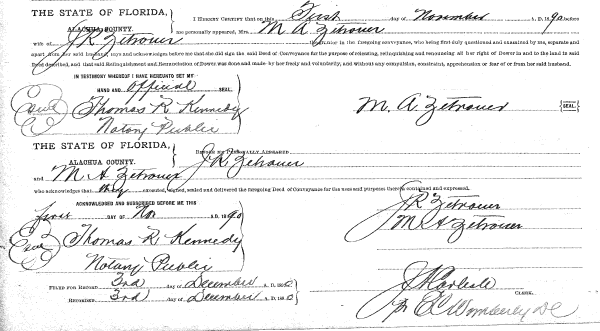 THE STATE OF FLORIDA,
ALACHUA COUNTY.
I HEREBY CERTIFY that on this First day of November A. D. 1890 before
me personally appeared, Mrs. M A Zetrouer
wife of J R Zetrouer in the foregoing conveyance, who being first duly questioned and examined by me, separate and
apart from her said husband, says and acknowledges before me that she did sign the said Deed of Conveyance for the purpose of releasing, relinquishing and renouncing all her right of Dower in and to the land in said
Deed described, and that said Relinquishment and Renunciation of Dower was done and made by her freely and voluntarily, and without any compulsion, constraint, apprehension or fear of or from her said husband.
IN TESTIMONY WHEREOF I HAVE HEREUNTO SET MY
HAND AND official SEAL,
Seal Thomas R Kennedy
Notary Public
M. A. Zetrouer SEAL
THE STATE OF FLORIDA,
ALACHUA COUNTY.
BEFORE ME PERSONALLY APPEARED J R Zetrouer
and M A Zetrouer
who acknowledges that they executed, signed, sealed and delivered the foregoing Deed of Conveyance for the uses and purposes therein contained and expressed.
ACKNOWLEDGED AND SUBSCRIBED BEFORE ME THIS
first DAY OF Nov A. D. 1890
J R Zetrouer
M A Zetrouer
Seal Thomas R Kennedy
Notary Public
FILED FOR RECORD 3rd day of December A. D. 1890
RECORDED 3rd day of December A. D. 1890
CLERK.